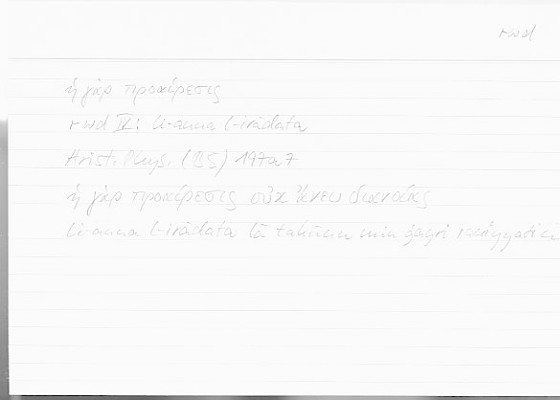 rwd
ἡ γὰρ προαίρεσις
rwd IV: li-anna l-irādata
Arist. Phys. (II 5) 197a7
ἡ γὰρ προαίρεσις οὐκ ἄνευ διανοίας
li-anna l-irādata lā takūnu min ġayri